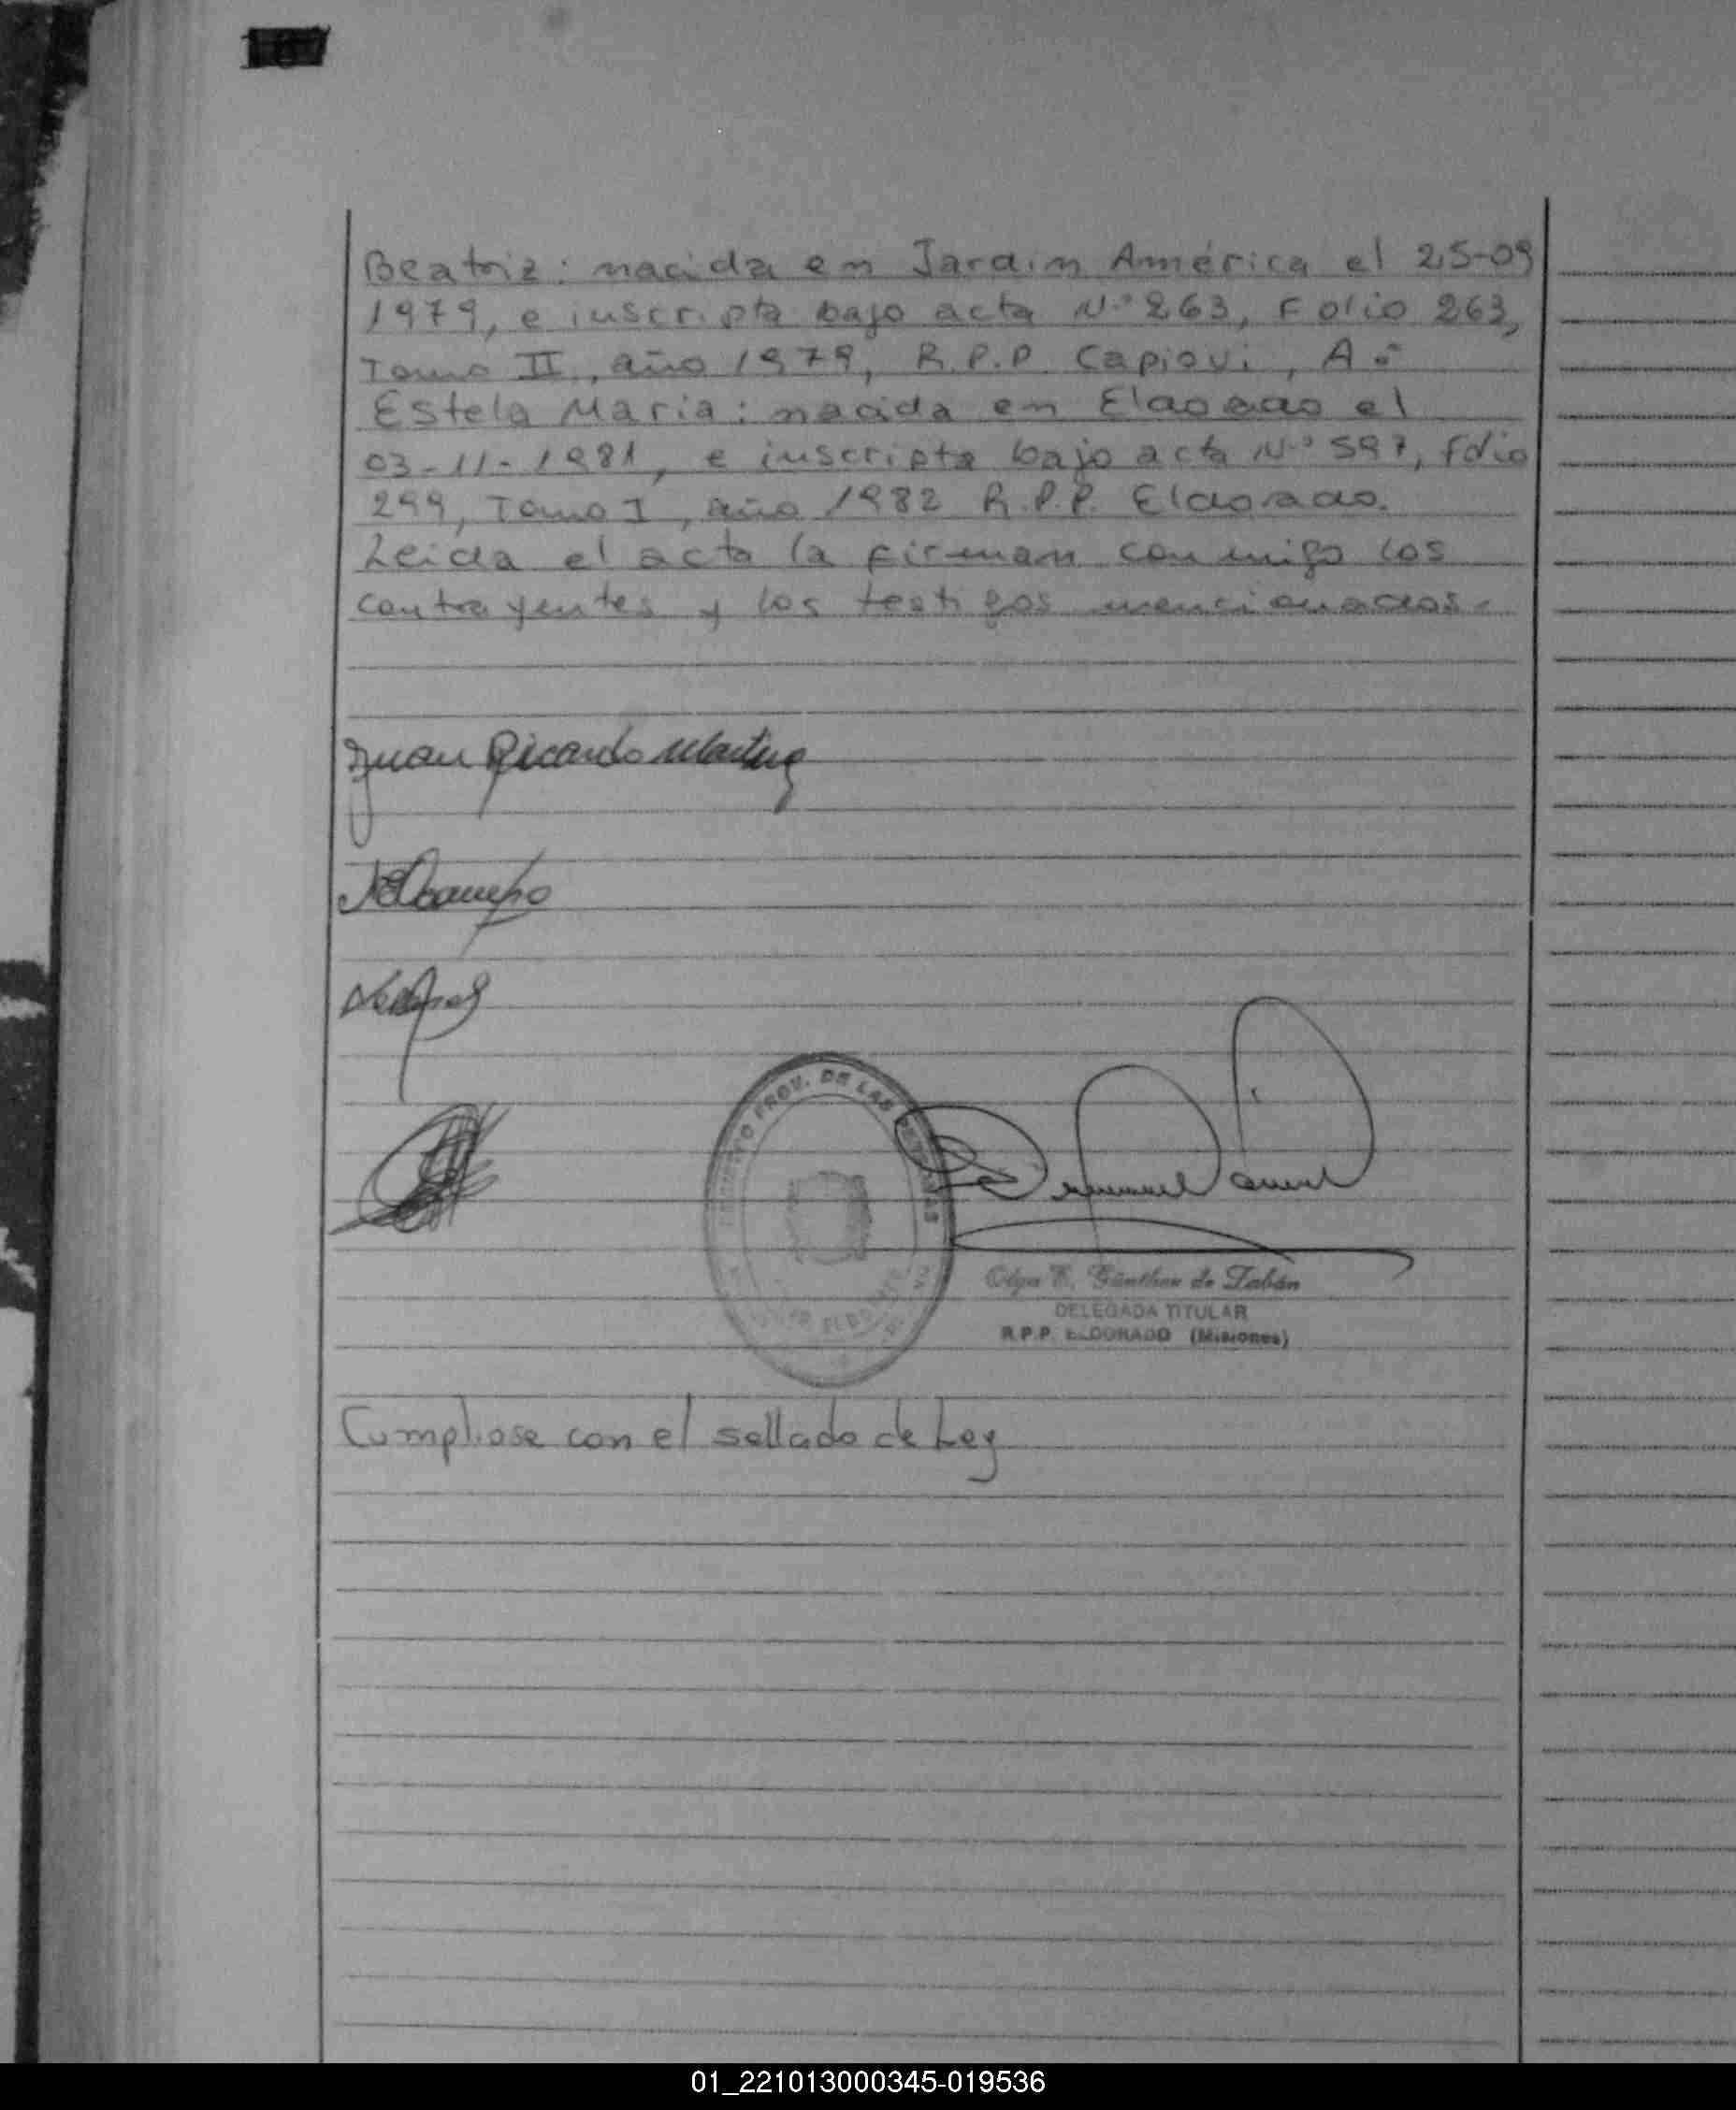 Beatriz: nacida en Jardin América el 25-09
1979, e inscripta bajo acta N° 263, Folio 263,
Tomo II, año 1979, R.P.P. Capiovi, A
Estela Maria: nacida en Eldorado el
03-11-1981, e inscripta bajo acta N° 597, Folio
299, Tomo I, año 1982 R.P.P. Eldorado.
Leida el acta la firman conmigo los
contrayentes y los testigos mencionados.
Juan Ricardo Martinez
Ocampo
PROV. DE LAS
Olga E. Günther de Tabán
DELEGADA TITULAR
R.P.P. ELDORADO (Misiones)
Cumpliose con el sellado de Ley
01_221013000345-019536